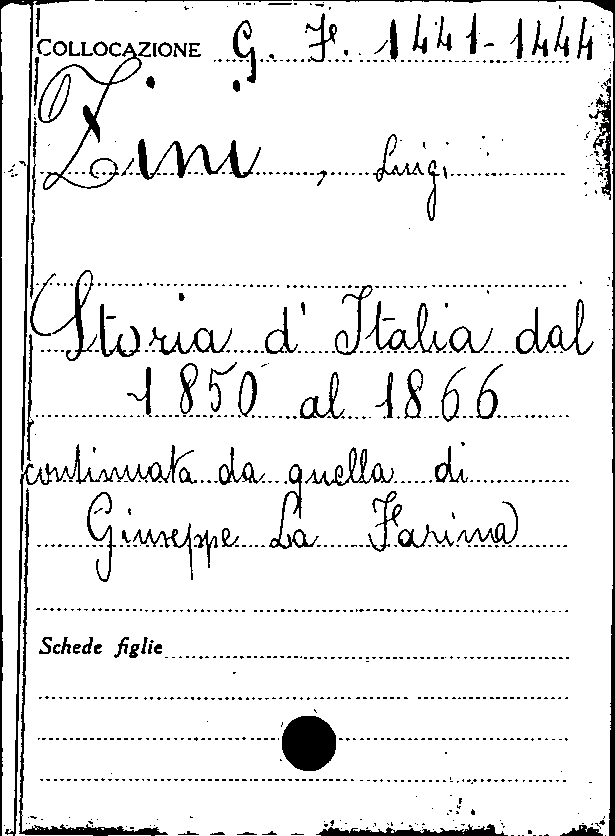 COLLOCAZIONE G. F. 1441-1444
Zini, Luigi
Storia d'Italia dal
1850 al 1866
continuata da quella di
Giuseppe La Farina
Schede figlie